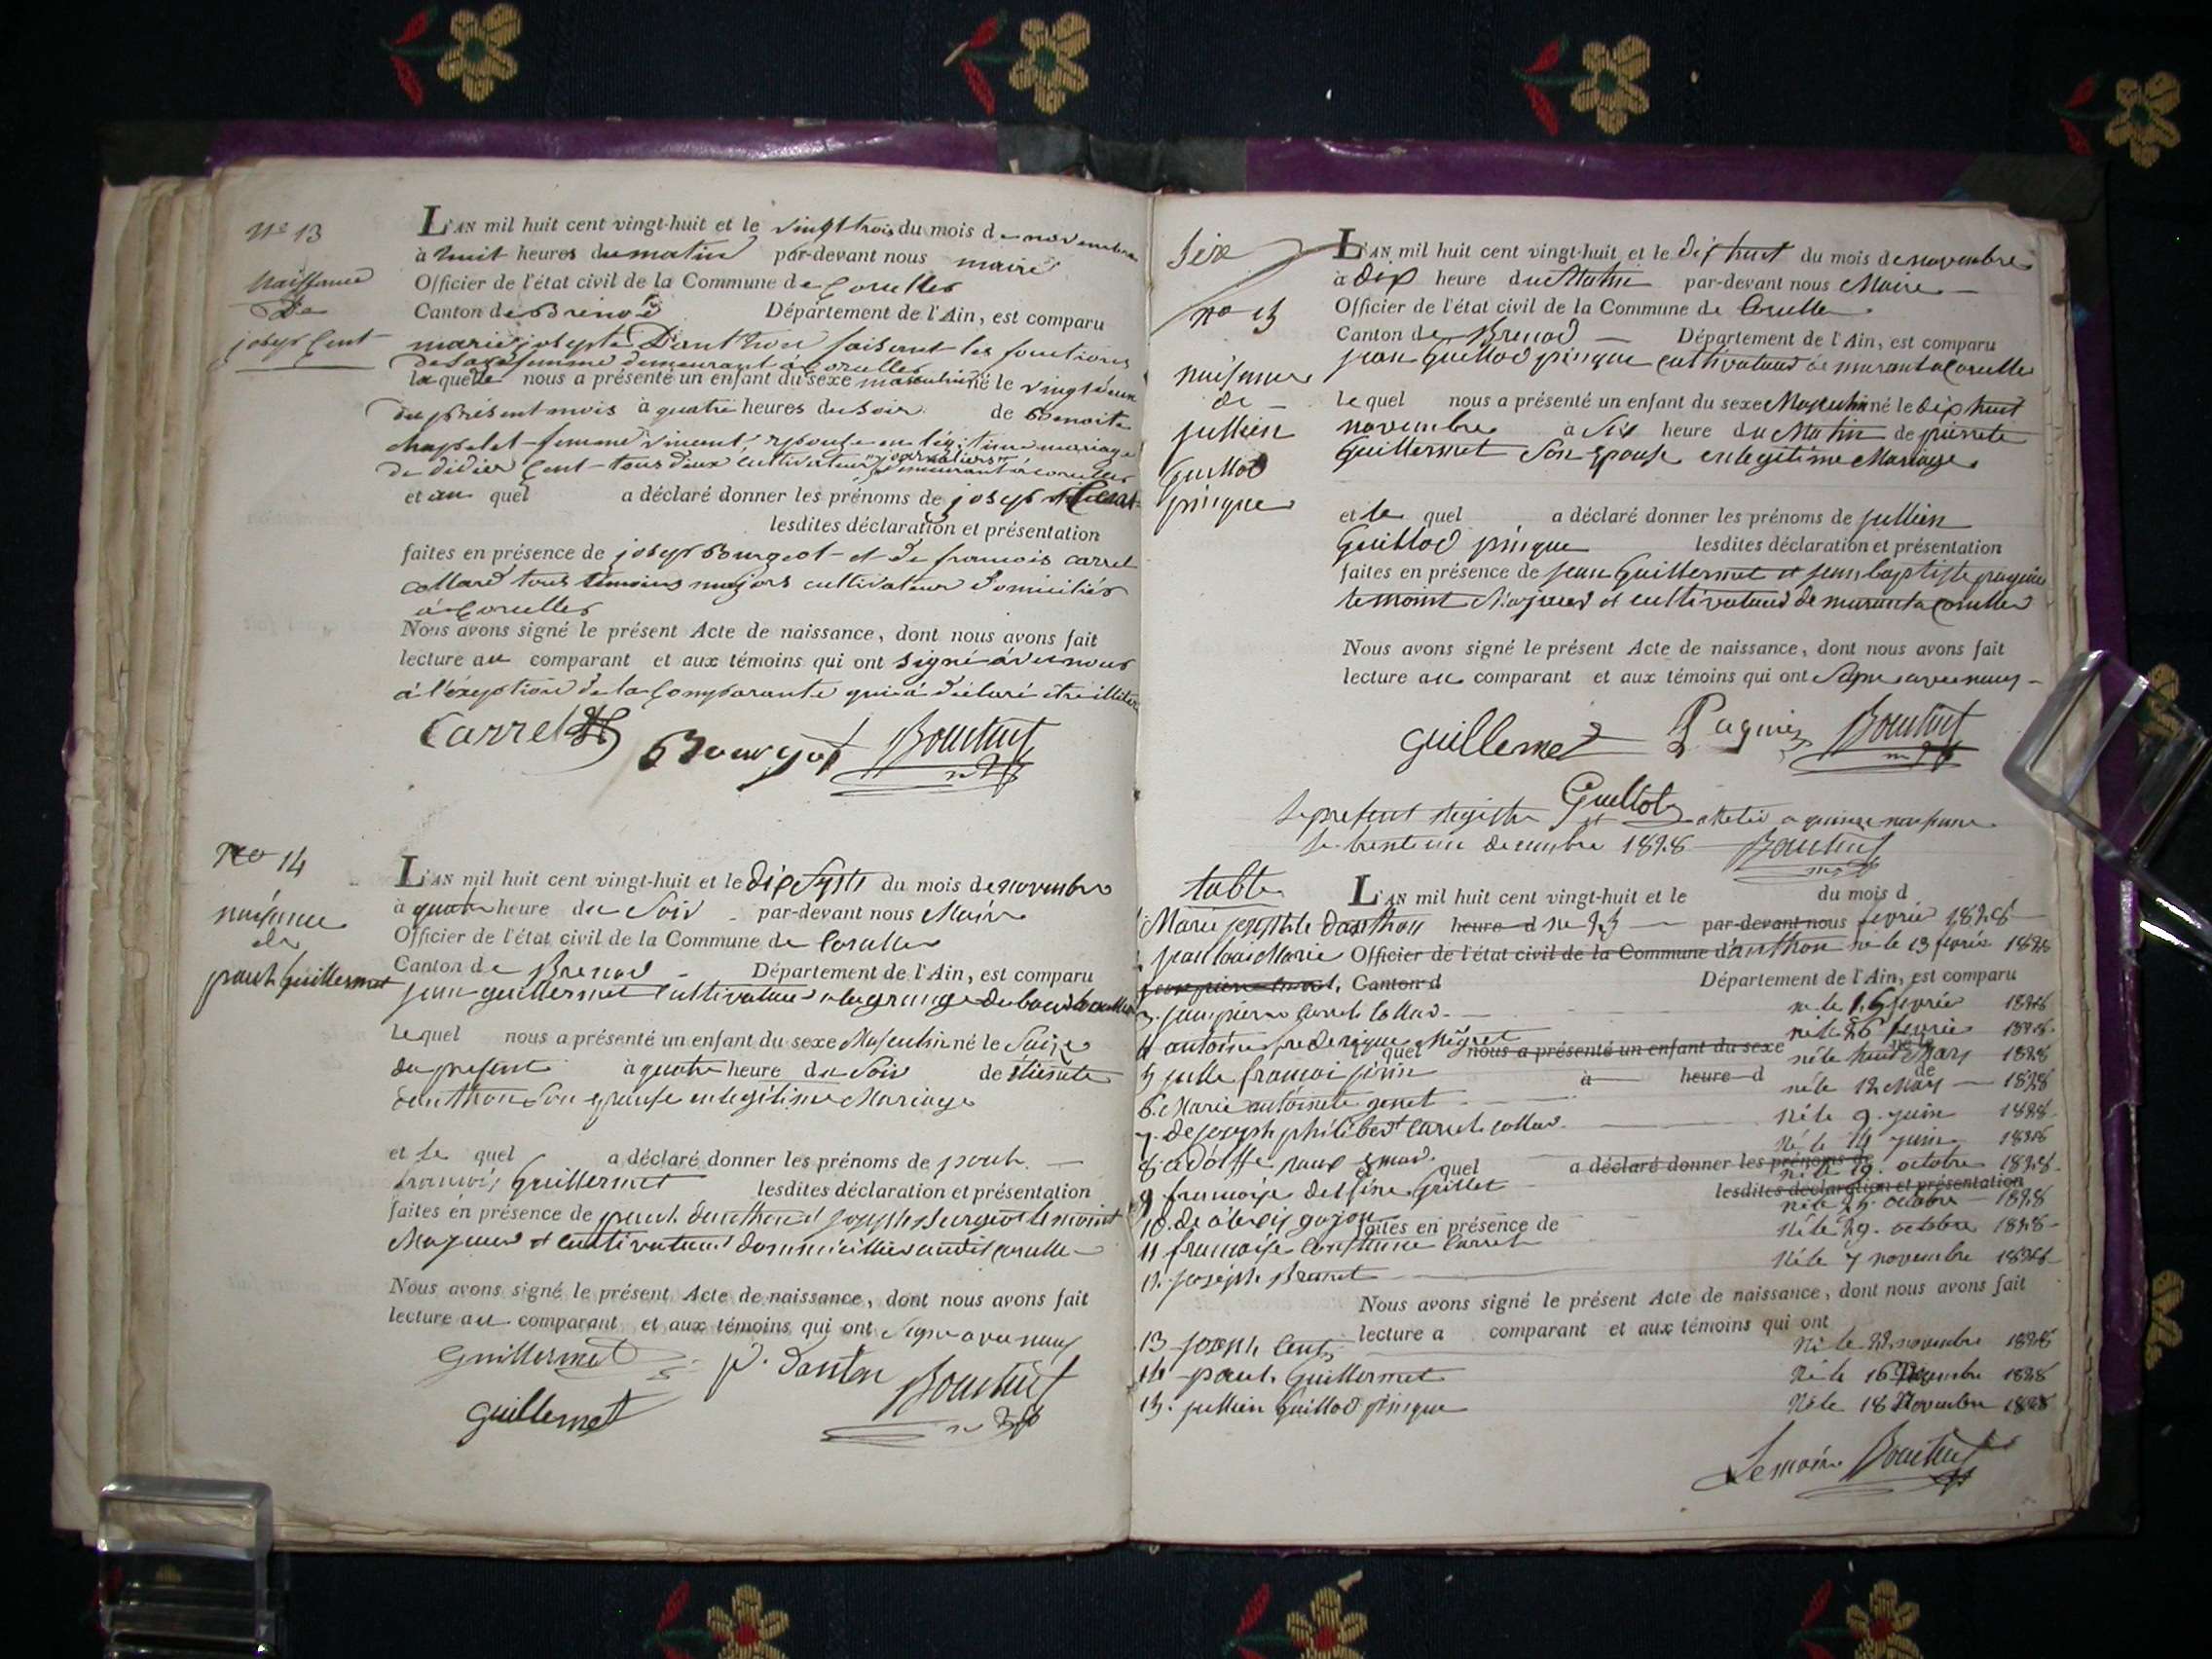 No 13
Naissance
De
joseph Cent
L'AN mil huit cent vingt-huit et le vingt trois du mois de novembre
à huit heures du matin par-devant nous maire
Officier de l'état civil de la Commune de Corcelles
Canton de Brenod Département de l'Ain, est comparu
marie josepte Danthon faisant les fonctions
de sage femme demeurant à Corcelles
laquelle nous a présenté un enfant du sexe masculin né le vingt deux
du présent mois à quatre heures du soir de Benoite
chapelet femme épouse en légitime mariage
de didier Cent tous deux cultivateurs demeurant à corcelles
et au quel a déclaré donner les prénoms de joseph Cent
lesdites déclaration et présentation
faites en présence de joseph Bourgeot et de francois carrel
collard tous témoins majors cultivateur domiciliés
à Corcelles
Nous avons signé le présent Acte de naissance, dont nous avons fait
lecture au comparant et aux témoins qui ont signé avec nous
à l'éxeption de la Comparante qui a déclaré être illitérée
Carrel Bourgot
No 14
naisance
de
paul Guillermet
L'AN mil huit cent vingt-huit et le dix Septe du mois de novembre
à quatre heure du Soir par-devant nous Maire
Officier de l'état civil de la Commune de Corcelle
Canton de Brenod Département de l'Ain, est comparu
jean guillermet Cultivateur a la grange du
Le quel nous a présenté un enfant du sexe Masculin né le Saize
du present à quatre heure du Soir de
danthon Son epouse en legitime Mariage
et le quel a déclaré donner les prénoms de paul
francois Guillermet lesdites déclaration et présentation
faites en présence de paul danthon et joseph Burgeot temoint
Majeur et Cultivateur domicillier audit Corcelle
Nous avons signé le présent Acte de naissance, dont nous avons fait
lecture au comparant et aux témoins qui ont Signe avec nous
Guillermet P. Danton
guillermet
Six
no 15
naisance
de
jullien
Guillod
pinque
L'AN mil huit cent vingt-huit et le dix huit du mois de novembre
à dix heure du Matin par-devant nous Maire
Officier de l'état civil de la Commune de Corcelle
Canton de Brenod Département de l'Ain, est comparu
jean Guillod pinque Cultivateur de murant a Corcelle
le quel nous a présenté un enfant du sexe Masculin né le dix huit
novembre à Six heure du Matin de pierrete
Guillermet Son Epouse en legitime Mariage
et le quel a déclaré donner les prénoms de jullien
Guillod pinque lesdites déclaration et présentation
faites en présence de jean Guillermet et jean baptiste
temoint Majeur et cultivateur de murant a Corcelle
Nous avons signé le présent Acte de naissance, dont nous avons fait
lecture au comparant et aux témoins qui ont Signe avec nous
guillemet Paquier
Guillot
Le present Registre arreté a quinze naisance
le trente un decembre 1828
table
L'AN mil huit cent vingt-huit et le du mois d
Marie josephte Danthon heure d ne 23 par-devant nous fevrié 1828
jean louis Marie Officier de l'état civil de la Commune d danthon ne le 13 fevrié 1828
Canton d Département de l'Ain, est comparu
3. jean pierre Carrel Collad ne le 16 fevrié 1828
4 antoine frederique Migret né le 26 fevrié 1828
quel nous a présenté un enfant du sexe né le
5 julle francoi né le huit Mars 1828
à heure d de
6. Marie antoinete genet né le 12 May 1828
7. de joseph philibert Carrel Collad Né le 9 juin 1828
8. adolffe Né le juin 1828
quel a déclaré donner les prénoms de
9. francoise delfine Grillet né le 19 octobre 1828
lesdites déclaration et présentation
10. de alexis gojon né le 25 octobre 1828
faites en présence de
11 francoise Constance Carrel Né le 29. octobre 1828
12. joseph Brunet Né le 7 novembre 1828
Nous avons signé le présent Acte de naissance, dont nous avons fait
lecture a comparant et aux témoins qui ont
13 joseph Cent Né le 22 novembre 1828
14 paul Guillermet Né le 16 1828
15. jullien Guillod pinque Né le 18 Novembre 1828
Le maire